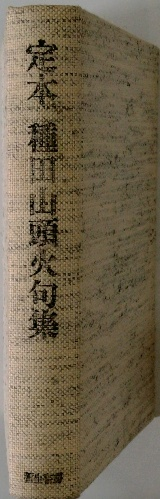 定本 種田山頭火句集